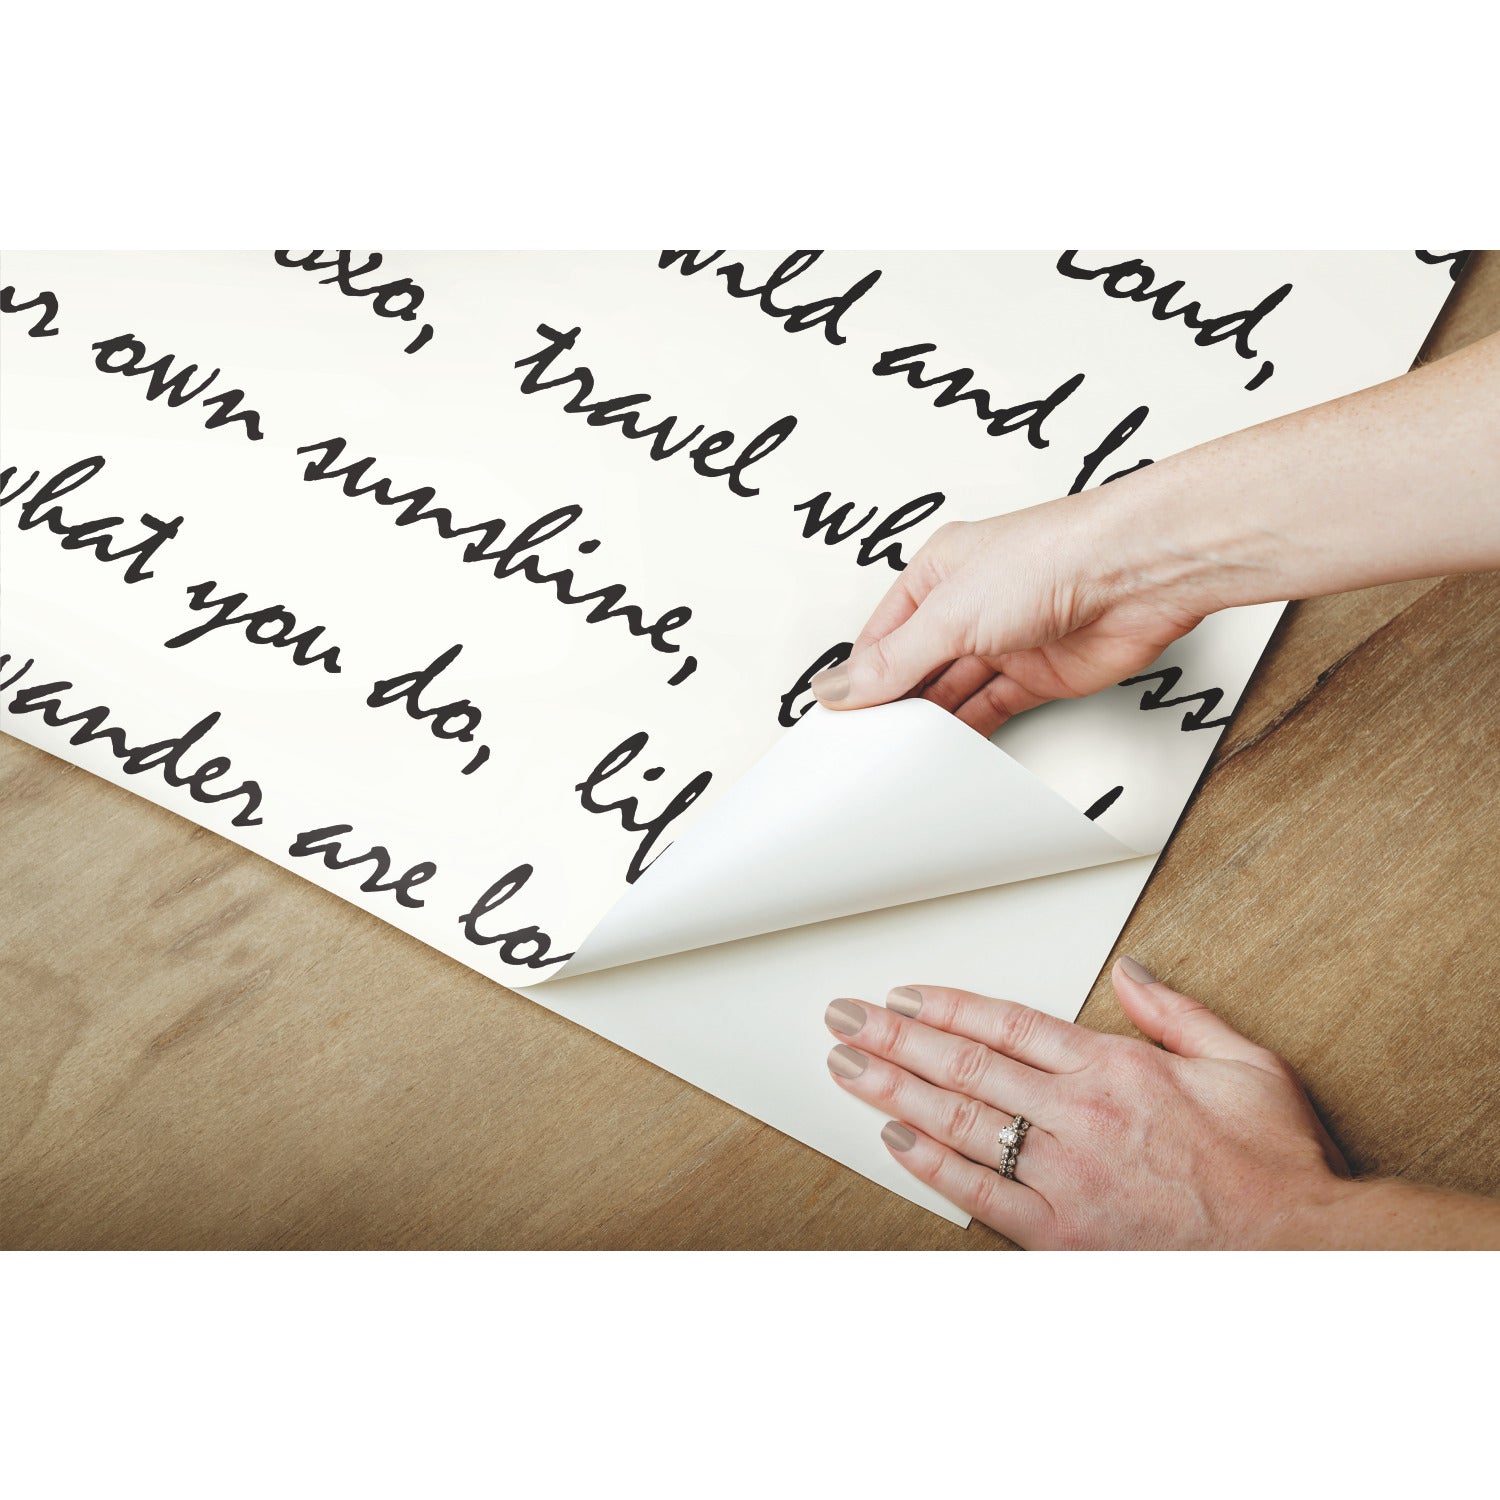 loud,
wild and
xoxo, travel wh
r own sunshine,
what you do, lif
wander are lo